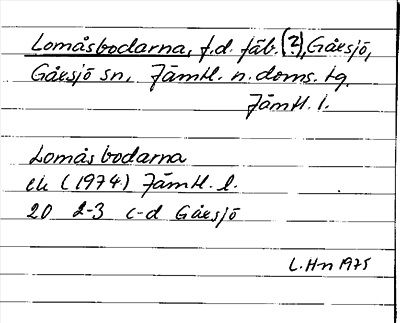 Lomåsbodarna, f.d. fäb. (?), Gåxsjö,
Gåxsjö sn, Jämtl. n. doms. tg.
Jämtl. l.
Lomåsbodarna
ek (1974) Jämtl. l.
20 2-3 c-d Gåxsjö
L.Hn 1975